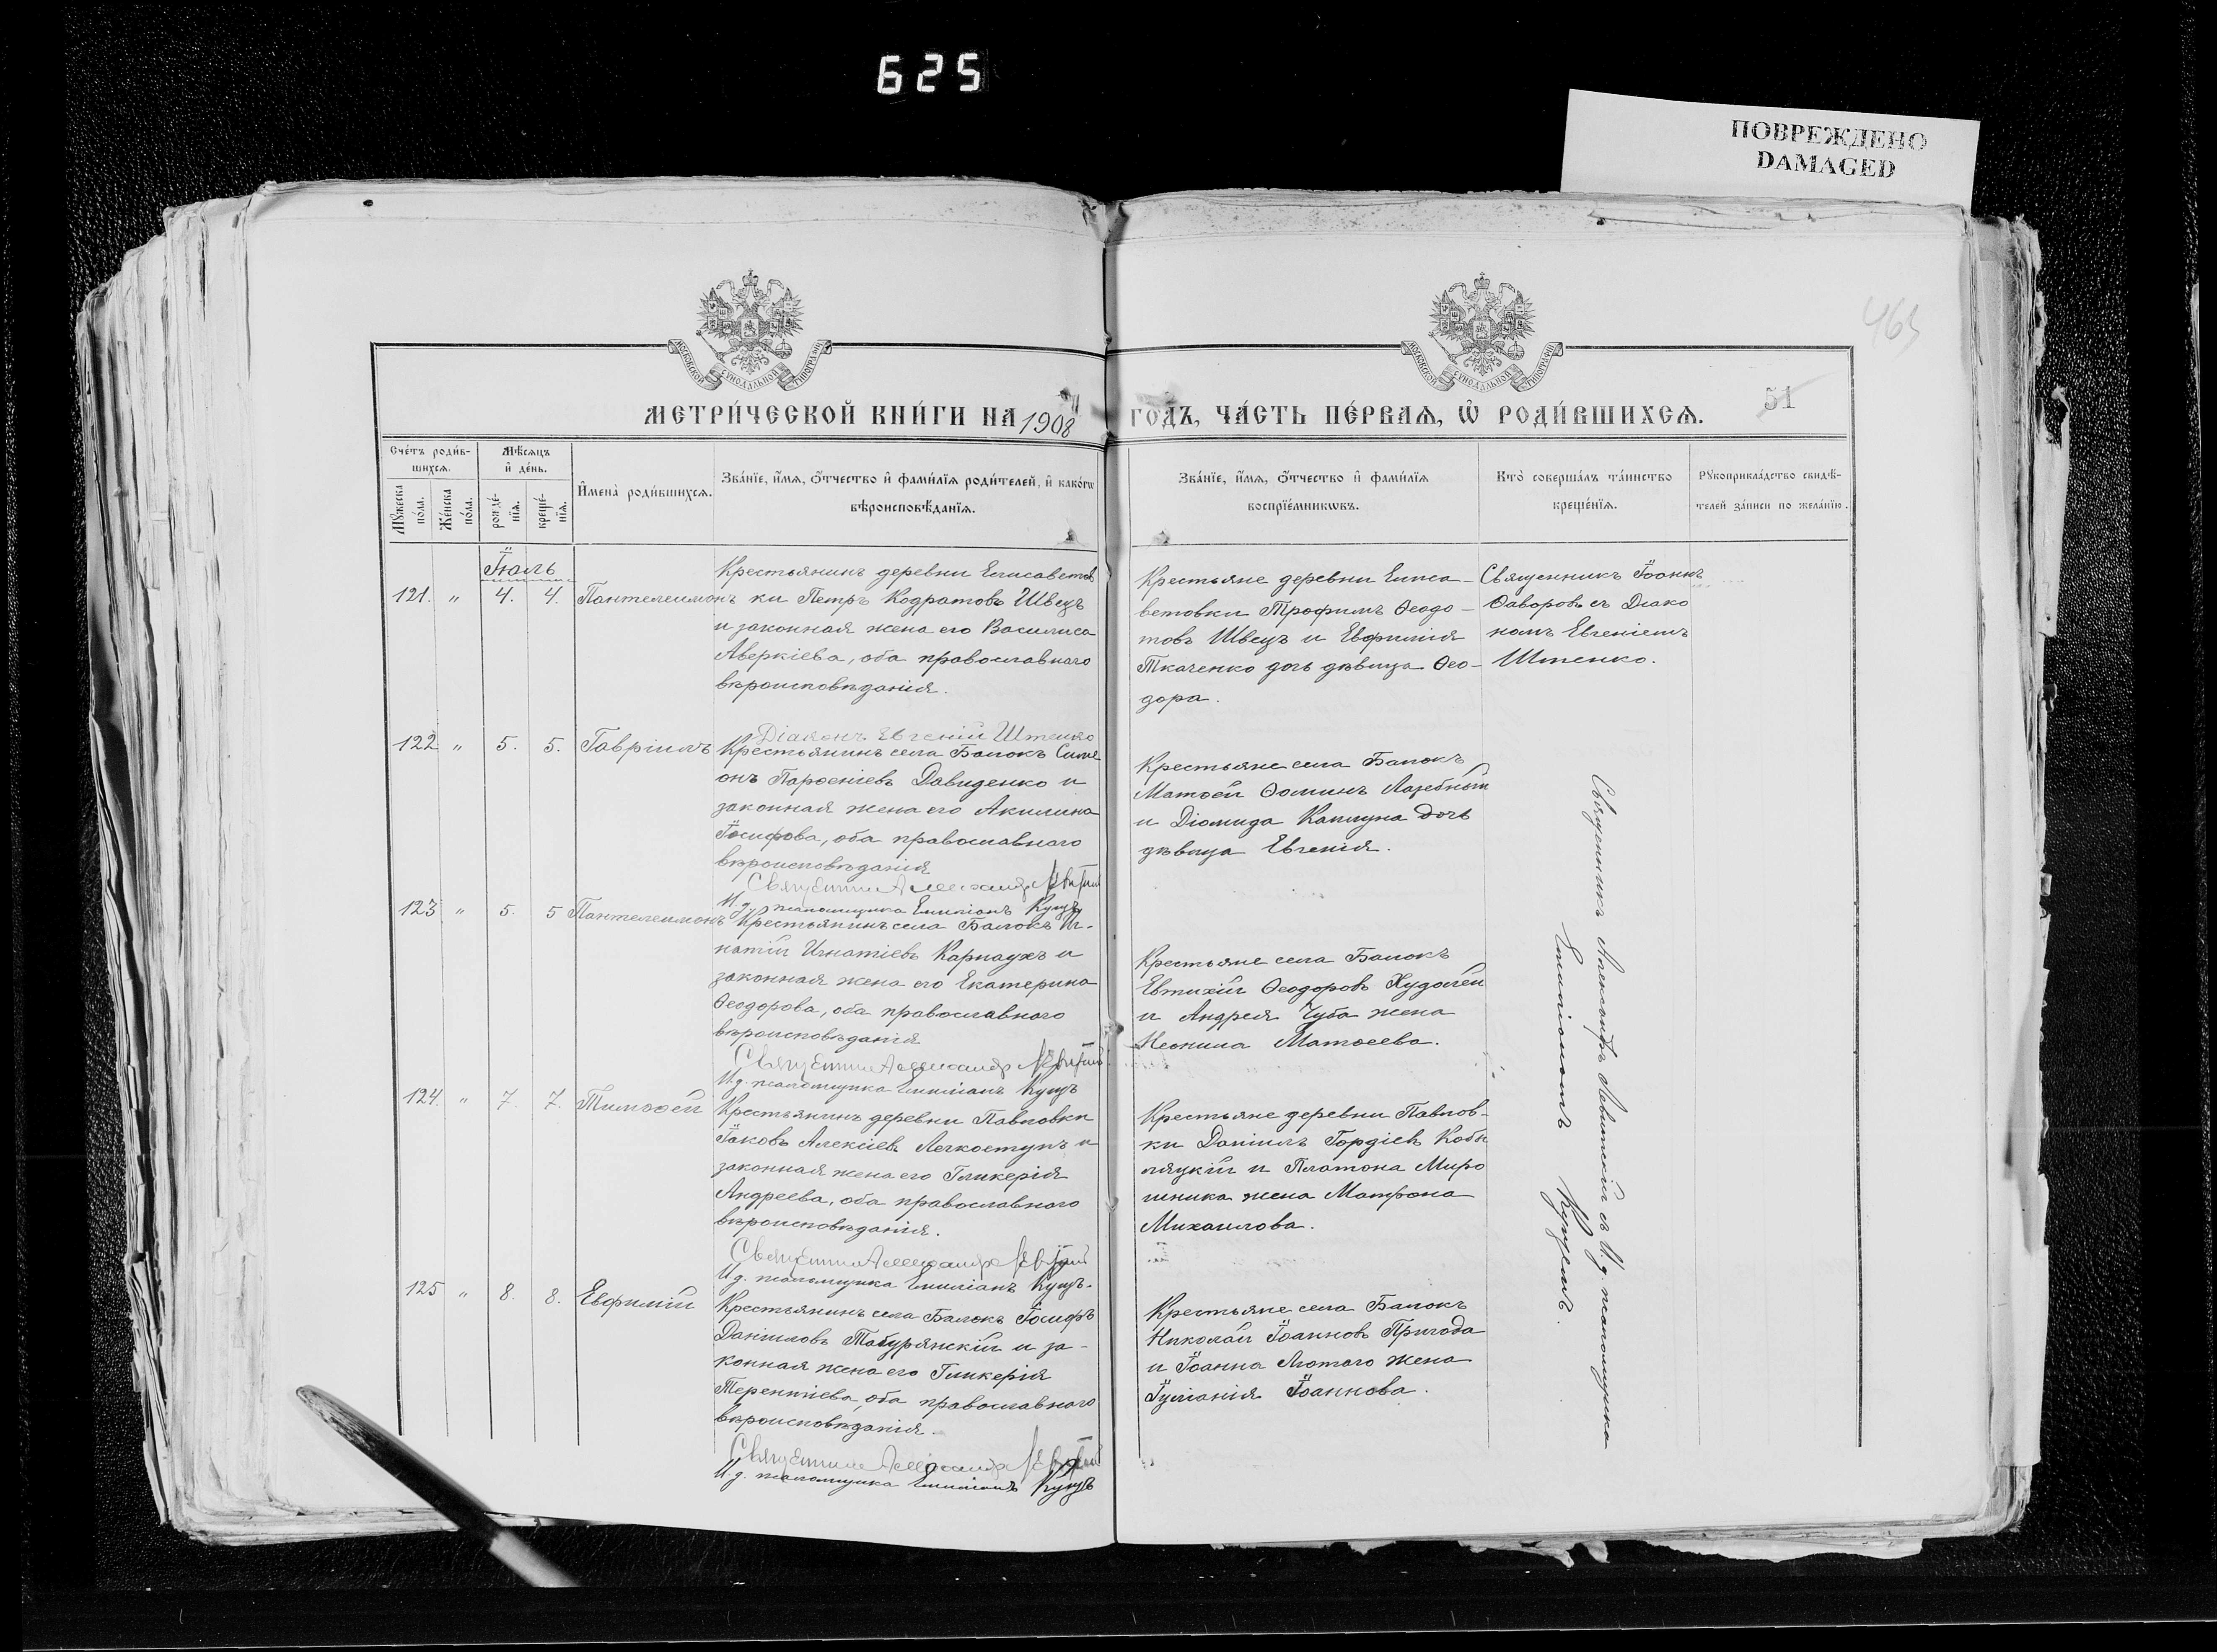 625
ПОВРЕЖДЕНО
DAMAGED
463
51
МОСКОВСКОЙ СѴНОДАЛЬНОЙ ТИПОГРАФІИ
МОСКОВСКОЙ СѴНОДАЛЬНОЙ ТИПОГРАФІИ
МЕТРИ́ЧЕСКОЙ КНИ́ГИ НА 1908
ГО́ДЪ, ЧА́СТЬ ПЕ́РВАѦ, Ѡ҆ РОДИ́ВШИХСѦ.
Сче́тъ роди́в-
шихсѧ.
Мꙋ́жеска по́ла.
Же́нска по́ла.
Мѣ́сѧцъ
и҆ де́нь.
рожде́-
нїѧ.
креще́-
нїѧ.
И҆мена̀ роди́вшихсѧ.
Зва́нїе, и҆́мѧ, ѻ҆́тчество и҆ фами́лїѧ роди́телей, и҆ како́гѡ
вѣроисповѣ́данїѧ.
Зва́нїе, и҆́мѧ, ѻ҆́тчество и҆ фами́лїѧ
воспрїе́мникѡвъ.
Кто̀ соверша́лъ та́инство
креще́нїѧ.
Рꙋкоприкла́дство свидѣ́-
телей за́писи по жела́нїю.
Іюль
121. " 4. 4. Пантелеимонъ
Крестьянинъ деревни Елисаветов
ки Петръ Кодратовъ Швецъ
и законная жена его Василиса
Аверкіева, оба православнаго
вѣроисповѣданія.
Діаконъ Евгеній Штенко
Крестьяне деревни Елиса-
ветовки Трофимъ Ѳеодо-
товъ Швецъ и Евфимія
Ткаченко дочь дѣвица Ѳео-
дора.
Священникъ Іоаннъ
Ѳаворовъ съ Діако
номъ Евгеніемъ
Штенко.
122 " 5. 5. Гавріилъ
Крестьянинъ села Балокъ Симе
онъ Парѳеніевъ Давиденко и
законная жена его Акилина
Іосифова, оба православнаго
вѣроисповѣданія
Священникъ Александръ Левитскій
И.д. псаломщика Емиліанъ Куцъ
Крестьяне села Балокъ
Матѳей Ѳоминъ Лазебный
и Діомида Каплуна дочь
дѣвица Евгенія.
123 " 5. 5 Пантелеимонъ
Крестьянинъ села Балокъ Иг-
натій Игнатіевъ Карнаухъ и
законная жена его Екатерина
Ѳеодорова, оба православнаго
вѣроисповѣданія
Священникъ Александръ Левитскій
И.д. псаломщика Емиліанъ Куцъ
Крестьяне села Балокъ
Евтихій Ѳеодоровъ Худолей
и Андрея Чуба жена
Неонила Матѳеева.
124. " 7. 7. Тимоѳей
Крестьянинъ деревни Павловки
Іаковъ Алексіевъ Легкоступъ и
законная жена его Гликерія
Андреева, оба православнаго
вѣроисповѣданія.
Священникъ Александръ Левитскій
И.д. псаломщика Емиліанъ Куцъ.
Крестьяне деревни Павлов-
ки Даніилъ Гордіевъ Кобы
ляцкій и Платона Миро
шника жена Матрона
Михаилова.
125 " 8. 8. Евфимій
Крестьянинъ села Балокъ Іосифъ
Даніиловъ Табурянскій и за-
конная жена его Гликерія
Терентіева, оба православнаго
вѣроисповѣданія.
Священникъ Александръ Левитскій
И.д. псаломщика Емиліанъ Куцъ
Крестьяне села Балокъ
Николай Іоанновъ Пригода
и Іоанна Лютаго жена
Іуліанія Іоаннова.
Священникъ Александръ Левитскій съ И.д. псаломщика
Емиліаномъ Куцемъ.